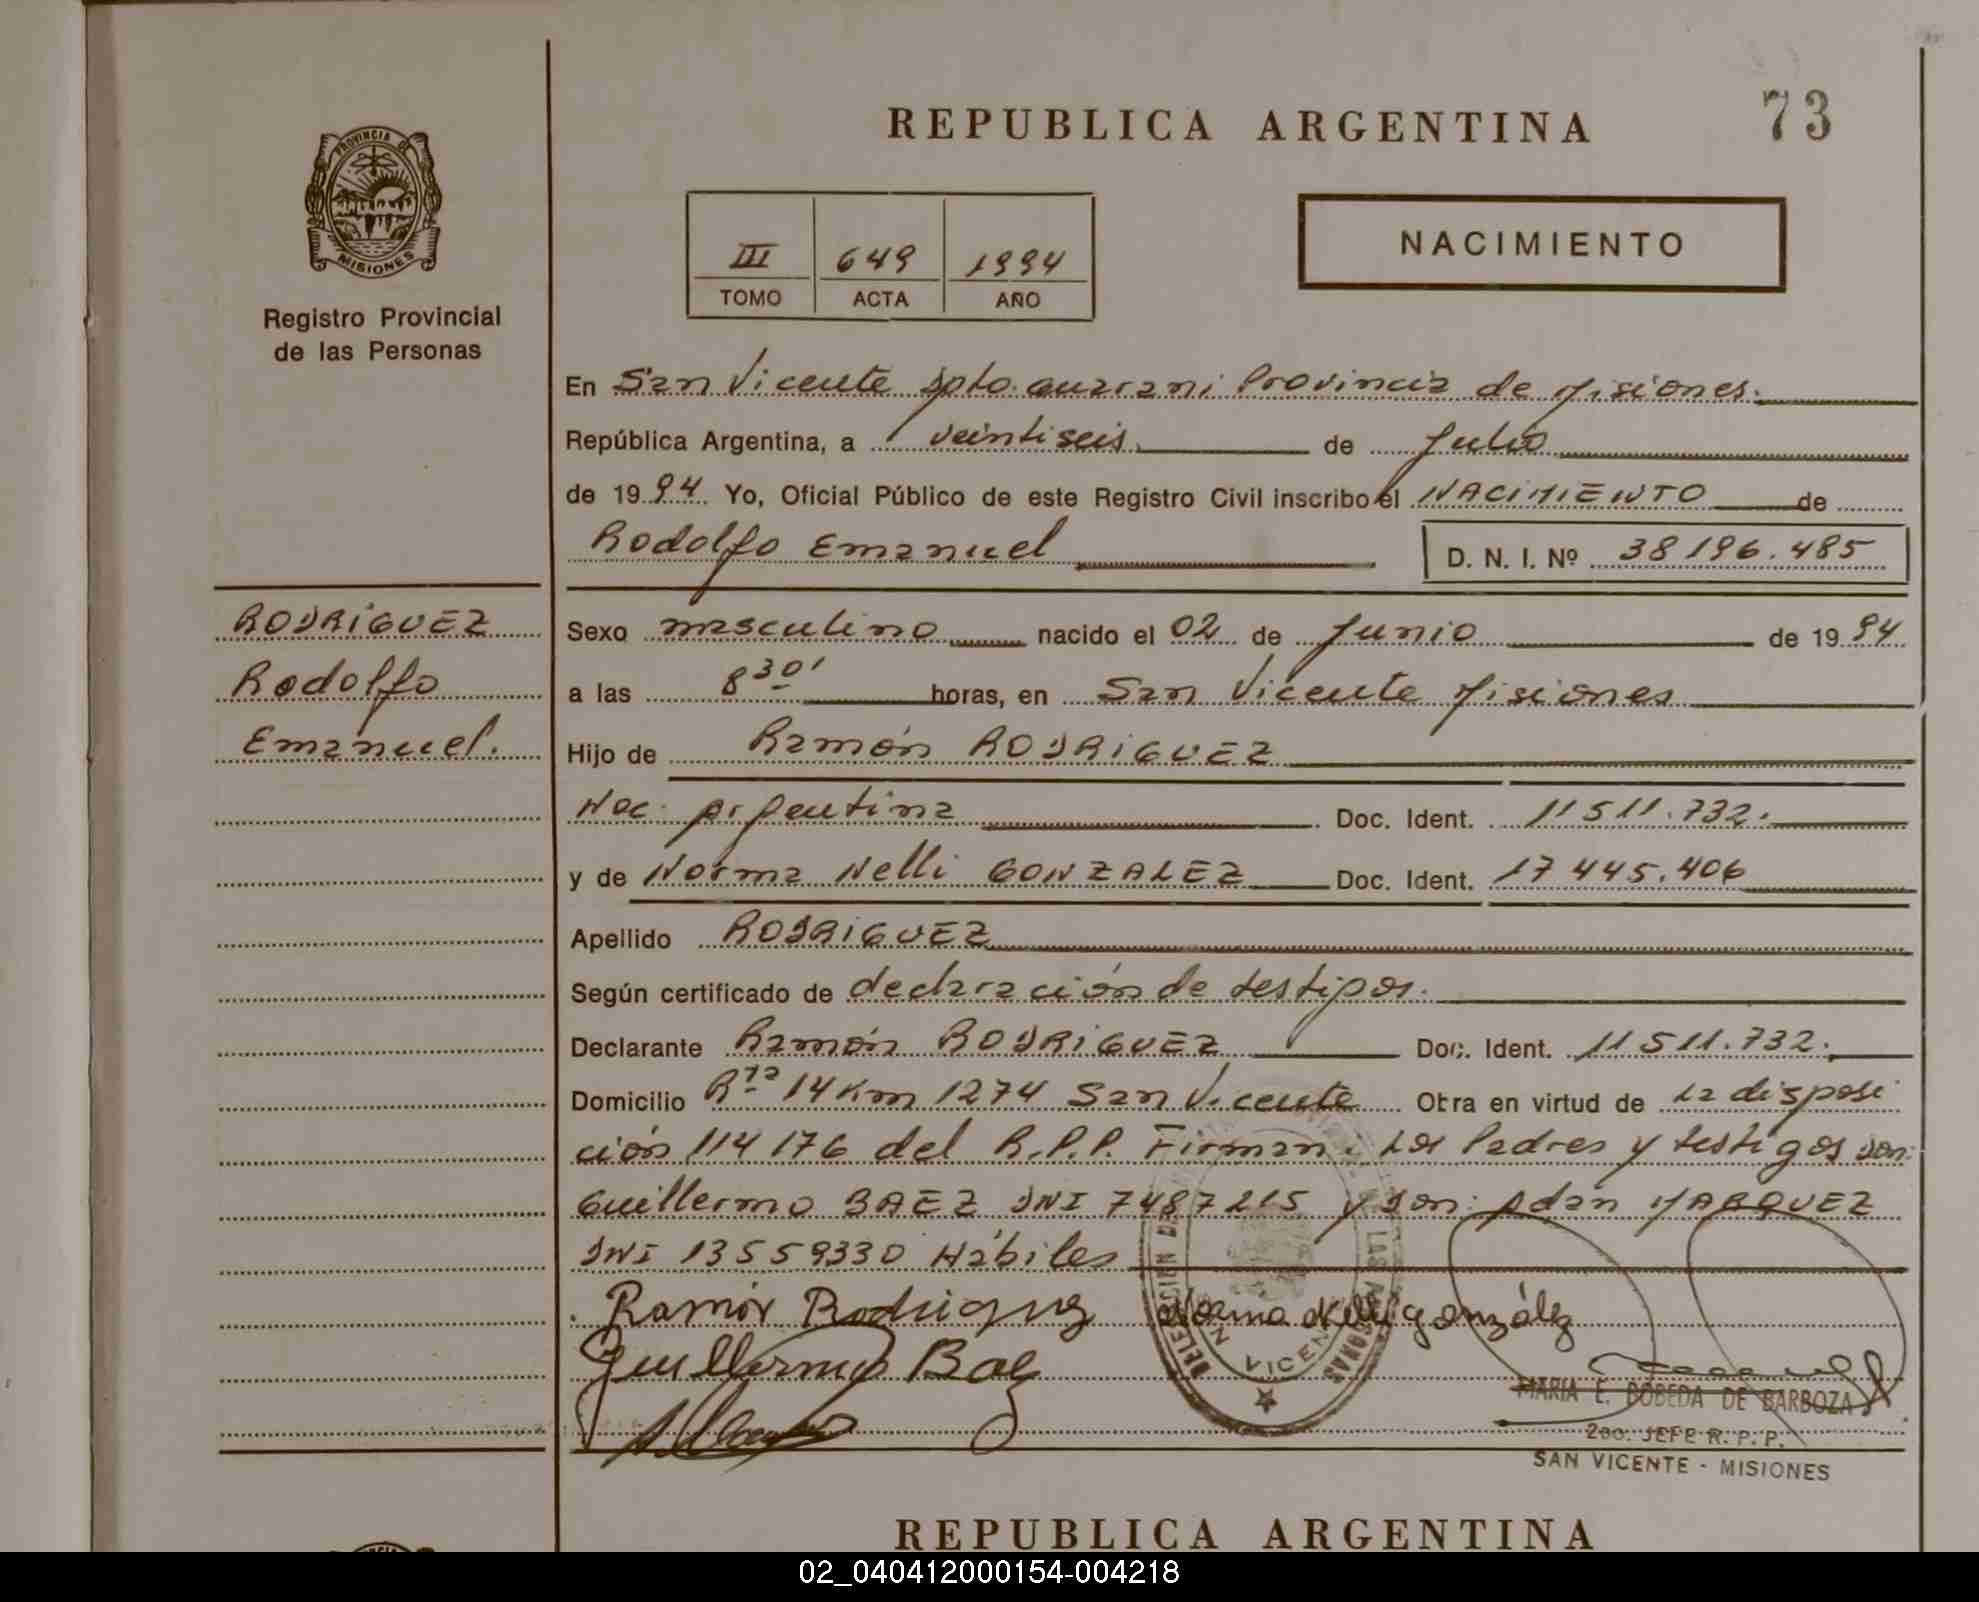 REPUBLICA ARGENTINA
73
PROVINCIA DE
MISIONES
Registro Provincial
de las Personas
III 649 1994
TOMO ACTA AÑO
NACIMIENTO
En San Vicente Dpto. Guarani Provincia de Misiones.
República Argentina, a veintiseis de Julio
de 1994 Yo, Oficial Público de este Registro Civil inscribo el NACIMIENTO de
Rodolfo Emanuel D. N. I. Nº 38196.485
RODRIGUEZ
Rodolfo
Emanuel.
Sexo masculino nacido el 02 de Junio de 1994
a las 8 30' horas, en San Vicente Misiones
Hijo de Ramón RODRIGUEZ
Nac. Argentina Doc. Ident. 11511.732.
y de Norma Nelli GONZALEZ Doc. Ident. 17445.406
Apellido RODRIGUEZ
Según certificado de declaración de testigos.
Declarante Ramón RODRIGUEZ Doc. Ident. 11511.732.
Domicilio Rta 14 Km 1274 San Vicente Obra en virtud de la disposi
ción 114 176 del R.P.P. Firman: Los Padres y testigos son:
Guillermo BAEZ DNI 7487215 y Don: Adán MARQUEZ
DNI 13559330 Hábiles
Ramón Rodriguez Norma Nelli González
Guillermo Baez
MARIA E. BOBEDA DE BARBOZA
2do. JEFE R. P. P.
SAN VICENTE - MISIONES
REPUBLICA ARGENTINA
02_040412000154-004218